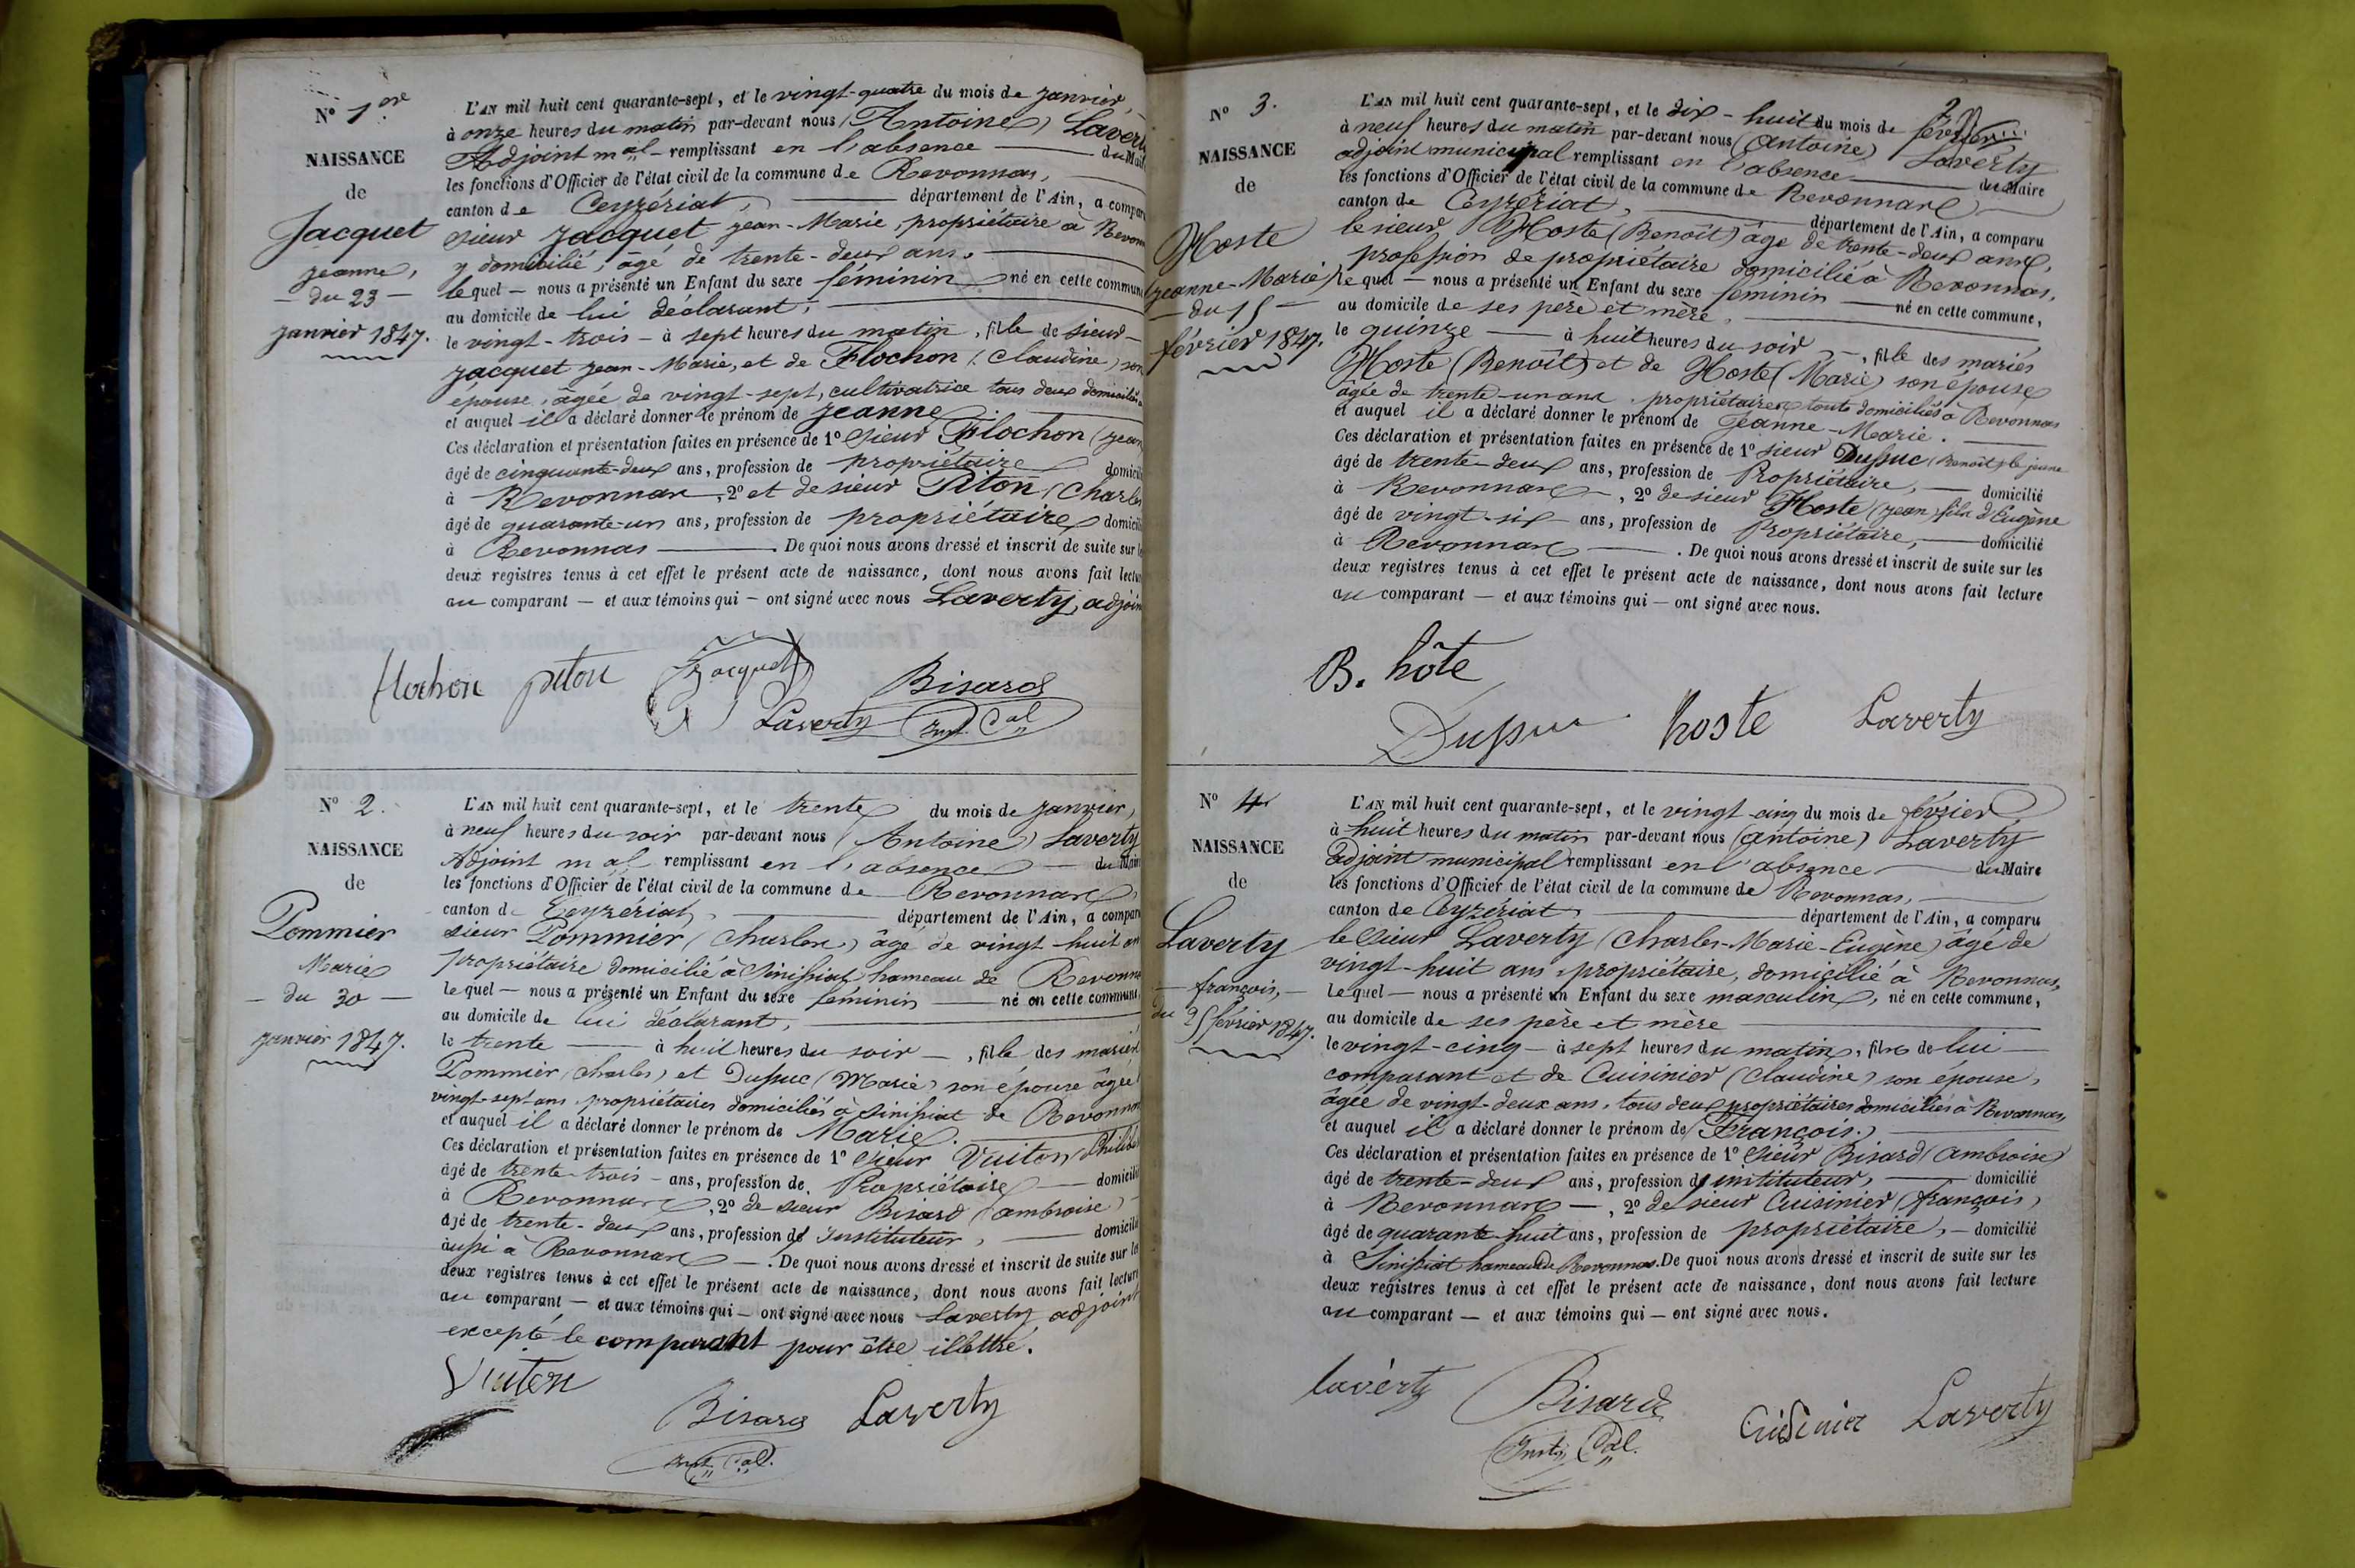 N° 1ere
NAISSANCE
de
Jacquet
Jeanne,
— du 23 —
janvier 1847.
L'AN mil huit cent quarante-sept, et le vingt-quatre du mois de janvier,
à onze heures du matin par-devant nous (Antoine) Laverty
Adjoint mal remplissant en l'absence — du Maire
les fonctions d'Officier de l'état civil de la commune de Revonnas,
canton de Ceyzériat, — département de l'Ain, a comparu
sieur Jacquet Jean-Marie, propriétaire à Revonnas
y domicilié, âgé de trente-deux ans.
lequel — nous a présenté un Enfant du sexe féminin né en cette commune
au domicile de lui déclarant,
le vingt-trois — à sept heures du matin, fille de sieur —
Jacquet Jean-Marie, et de Flochon (Claudine) son
épouse, âgée de vingt-sept, cultivatrice tous deux domiciliés
et auquel il a déclaré donner le prénom de Jeanne.
Ces déclaration et présentation faites en présence de 1° sieur Flochon (Jean
âgé de cinquante-deux ans, profession de propriétaire domicilié
à Revonnas, 2° et de sieur Piton (Charles
âgé de quarante-un ans, profession de propriétaire domicilié
à Revonnas —. De quoi nous avons dressé et inscrit de suite sur les
deux registres tenus à cet effet le présent acte de naissance, dont nous avons fait lecture
au comparant — et aux témoins qui — ont signé avec nous Laverty, adjoint
flochon piton Jacquet Bisard
Laverty inst. Cal
N° 2.
NAISSANCE
de
Pommier
Marie
— du 30 —
janvier 1847.
L'AN mil huit cent quarante-sept, et le trente du mois de janvier,
à neuf heures du soir par-devant nous (Antoine) Laverty
Adjoint mal remplissant en l'absence — du Maire
les fonctions d'Officier de l'état civil de la commune de Revonnas,
canton de Ceyzériat, — département de l'Ain, a comparu
sieur Pommier (Charles) âgé de vingt huit ans
propriétaire domicilié à Sinissiat hameau de Revonnas
lequel — nous a présenté un Enfant du sexe féminin — né en cette commune,
au domicile de lui déclarant,
le trente — à huit heures du soir —, fille des mariés
Pommier (Charles) et Dupuc (Marie) son épouse âgée
vingt-sept ans, propriétaires domiciliés à Sinissiat de Revonnas
et auquel il a déclaré donner le prénom de Marie.
Ces déclaration et présentation faites en présence de 1° sieur Vuiton Philibe
âgé de trente-trois — ans, profession de Propriétaire — domicilié
à Revonnas, 2° de sieur Bisard (ambroise)
âgé de trente-deux ans, profession d'Instituteur, — domicilié
aussi à Revonnas —. De quoi nous avons dressé et inscrit de suite sur les
deux registres tenus à cet effet le présent acte de naissance, dont nous avons fait lecture
au comparant — et aux témoins qui — ont signé avec nous Laverty adjoint
excepté le comparant pour être illettré.
Vuiton
Bisard Laverty
inst. Cal.
2
N° 3.
NAISSANCE
de
Hoste
Jeanne-Marie
— du 15 —
février 1847.
L'AN mil huit cent quarante-sept, et le dix-huit du mois de février
à neuf heures du matin par-devant nous (Antoine) Laverty
adjoint municipal remplissant en l'absence — du Maire
les fonctions d'Officier de l'état civil de la commune de Revonnas
canton de Ceyzériat, — département de l'Ain, a comparu
le sieur Hoste (Benoît) âgé de trente-deux ans,
profession de propriétaire domicilié à Revonnas,
lequel — nous a présenté un Enfant du sexe féminin — né en cette commune,
au domicile de ses père et mère,
le quinze — à huit heures du soir —, fille des mariés
Hoste (Benoît) et de Hoste (Marie) son épouse
âgée de trente-un ans, propriétaires tous domiciliés à Revonnas
et auquel il a déclaré donner le prénom de Jeanne-Marie.
Ces déclaration et présentation faites en présence de 1° sieur Dupuc (Benoît) le jeune
âgé de trente-deux ans, profession de Propriétaire, — domicilié
à Revonnas —, 2° de sieur Hoste (Jean) fils d'Eugène
âgé de vingt-six ans, profession de Propriétaire, — domicilié
à Revonnas —. De quoi nous avons dressé et inscrit de suite sur les
deux registres tenus à cet effet le présent acte de naissance, dont nous avons fait lecture
au comparant — et aux témoins qui — ont signé avec nous.
B. hôte
Dupuc hoste Laverty
N° 4
NAISSANCE
de
Laverty
— françois, —
du 25 février 1847.
L'AN mil huit cent quarante-sept, et le vingt-cinq du mois de février
à huit heures du matin par-devant nous (Antoine) Laverty
Adjoint municipal remplissant en l'absence — du Maire
les fonctions d'Officier de l'état civil de la commune de Revonnas,
canton de Ceyzériat, — département de l'Ain, a comparu
le sieur Laverty (Charles-Marie-Eugène) âgé de
vingt-huit ans, propriétaire, domicilié à Revonnas,
Lequel — nous a présenté un Enfant du sexe masculin, né en cette commune,
au domicile de ses père et mère
le vingt-cinq — à sept heures du matin, fils de lui —
comparant et de Cuisinier (Claudine) son épouse,
âgée de vingt-deux ans, tous deux propriétaires domiciliés à Revonnas,
et auquel il a déclaré donner le prénom de (François.)
Ces déclaration et présentation faites en présence de 1° sieur Bisard (Ambroise)
âgé de trente-deux ans, profession d'instituteur, — domicilié
à Revonnas —, 2° de sieur Cuisinier (françois)
âgé de quarante-huit ans, profession de propriétaire, — domicilié
à Sinissiat hameau de Revonnas. De quoi nous avons dressé et inscrit de suite sur les
deux registres tenus à cet effet le présent acte de naissance, dont nous avons fait lecture
au comparant — et aux témoins qui — ont signé avec nous.
laverty Bisard Cuisinier Laverty
Inst. Cal.